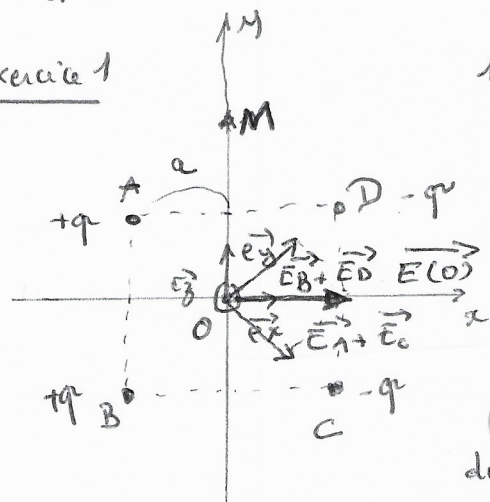 xercice 1
y
M
a
A
D -q
+q
ey
EB + ED
E(O)
ez
x
O
ex
EA + EC
+q
B
-q
C
du